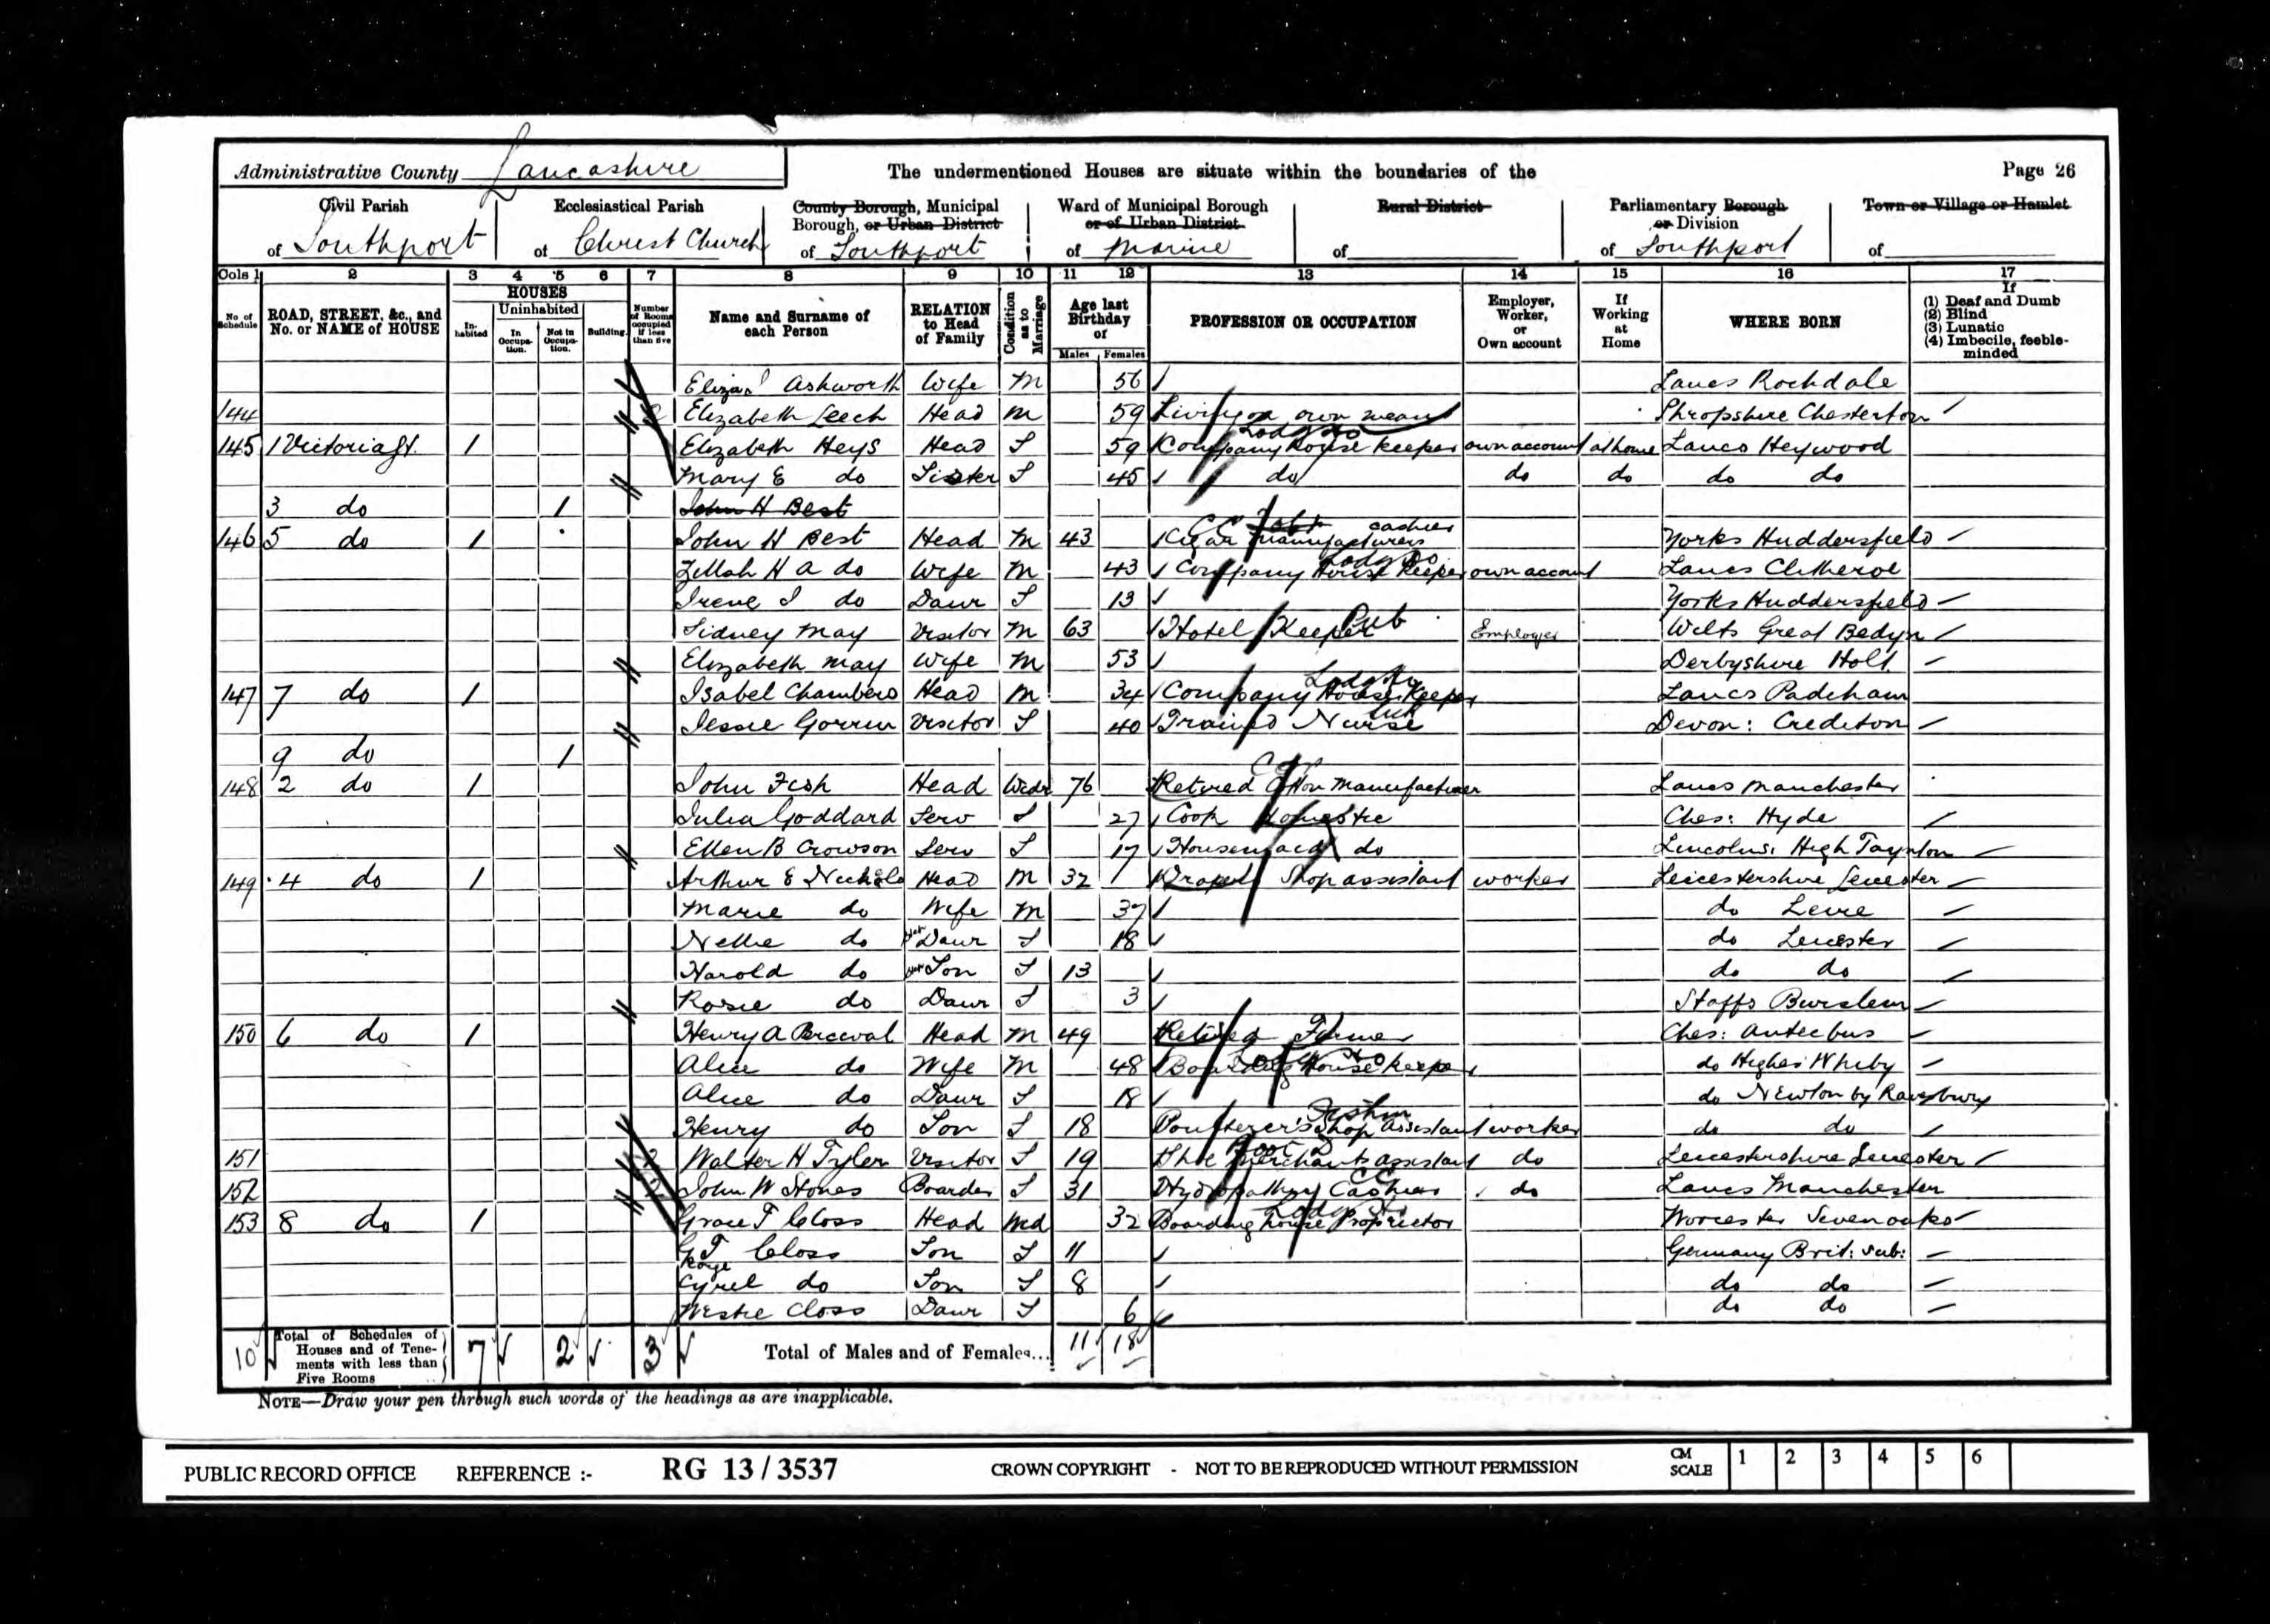 Administrative County Lancashire
The undermentioned Houses are situate within the boundaries of the
Page 26
Civil Parish of Southport
Ecclesiastical Parish of Christ Church
County Borough, Municipal Borough, or Urban District of Southport
Ward of Municipal Borough or of Urban District of Marine
Rural District of
Parliamentary Borough or Division of Southport
Town or Village or Hamlet of
Cols 1 2 3 4 5 6 7 8 9 10 11 12 13 14 15 16 17
No. of Schedule
ROAD, STREET, &c., and No. or NAME of HOUSE
HOUSES
Inhabited
Uninhabited
In Occupation.
Not in Occupation.
Building.
Number of Rooms occupied if less than five
Name and Surname of each Person
RELATION to Head of Family
Condition as to Marriage
Age last Birthday of
Males Females
PROFESSION OR OCCUPATION
Employer, Worker, or Own account
If Working at Home
WHERE BORN
If (1) Deaf and Dumb (2) Blind (3) Lunatic (4) Imbecile, feeble-minded
Ashworth Wife M 56 Lancs Rochdale
144 Elizabeth Leech Head M 59 Living on own means Shropshire Chesterton
145 1 Victoria St. 1 Elizabeth Heys Head S 59 Company House Keeper own account at home Lancs Heywood
Mary E do Sister S 45 do do do do do
3 do 1 John H Best
146 5 do 1 John H Best Head M 43 Cigar Manufacturers cashier Yorks Huddersfield
Zillah H A do Wife M 43 Company House Keeper own account Lancs Clitheroe
Irene I do Daur S 13 Yorks Huddersfield
Sidney May Visitor M 63 Hotel Keeper Pub Employer Wilts Great Bedyn
Elizabeth May Wife M 53 Derbyshire Holl.
147 7 do 1 Isabel Chambers Head M 34 Company House Keeper Lancs Padiham
Jessie Visitor S 40 Trained Nurse Devon: Crediton
9 do 1
148 2 do 1 John Fish Head Widr 76 Retired Cotton Manufacturer Lancs Manchester
Julia Goddard Serv S 27 Cook Domestic Ches: Hyde
Ellen B Crowson Serv S 17 Housemaid do Lincolns: High Toynton
149 4 do 1 Arthur E Nichols Head M 32 Drapers Shop assistant worker Leicestershire Leicester
Marie do Wife M 37 do Leire
Nellie do Daur S 18 do Leicester
Harold do Son S 13 do do
Rosie do Daur S 3 Staffs Burslem
150 6 do 1 Henry A Perceval Head M 49 Retired Farmer Ches:
Alice do Wife M 48 Boarding House Keeper do Higher Whitby
Alice do Daur S 18 do Newton by
Henry do Son S 18 Poulterer's Shop Assistant worker do do
151 Walter H Tyler Visitor S 19 Shoe Merchants assistant do Leicestershire Leicester
152 John W Stones Boarder S 31 Hydropathy Cashier do Lancs Manchester
153 8 do 1 Grace F Closs Head Wd 32 Boarding house Proprietor Worcester Sevenoaks
G F Closs Son S 11 Germany Brit: sub:
Cyril do Son S 8 do do
Closs Daur S 6 do do
10 Total of Schedules of Houses and of Tenements with less than Five Rooms 7 2 3 Total of Males and of Females... 11 18
NOTE—Draw your pen through such words of the headings as are inapplicable.
PUBLIC RECORD OFFICE REFERENCE :- RG 13 / 3537 CROWN COPYRIGHT - NOT TO BE REPRODUCED WITHOUT PERMISSION CM SCALE 1 2 3 4 5 6